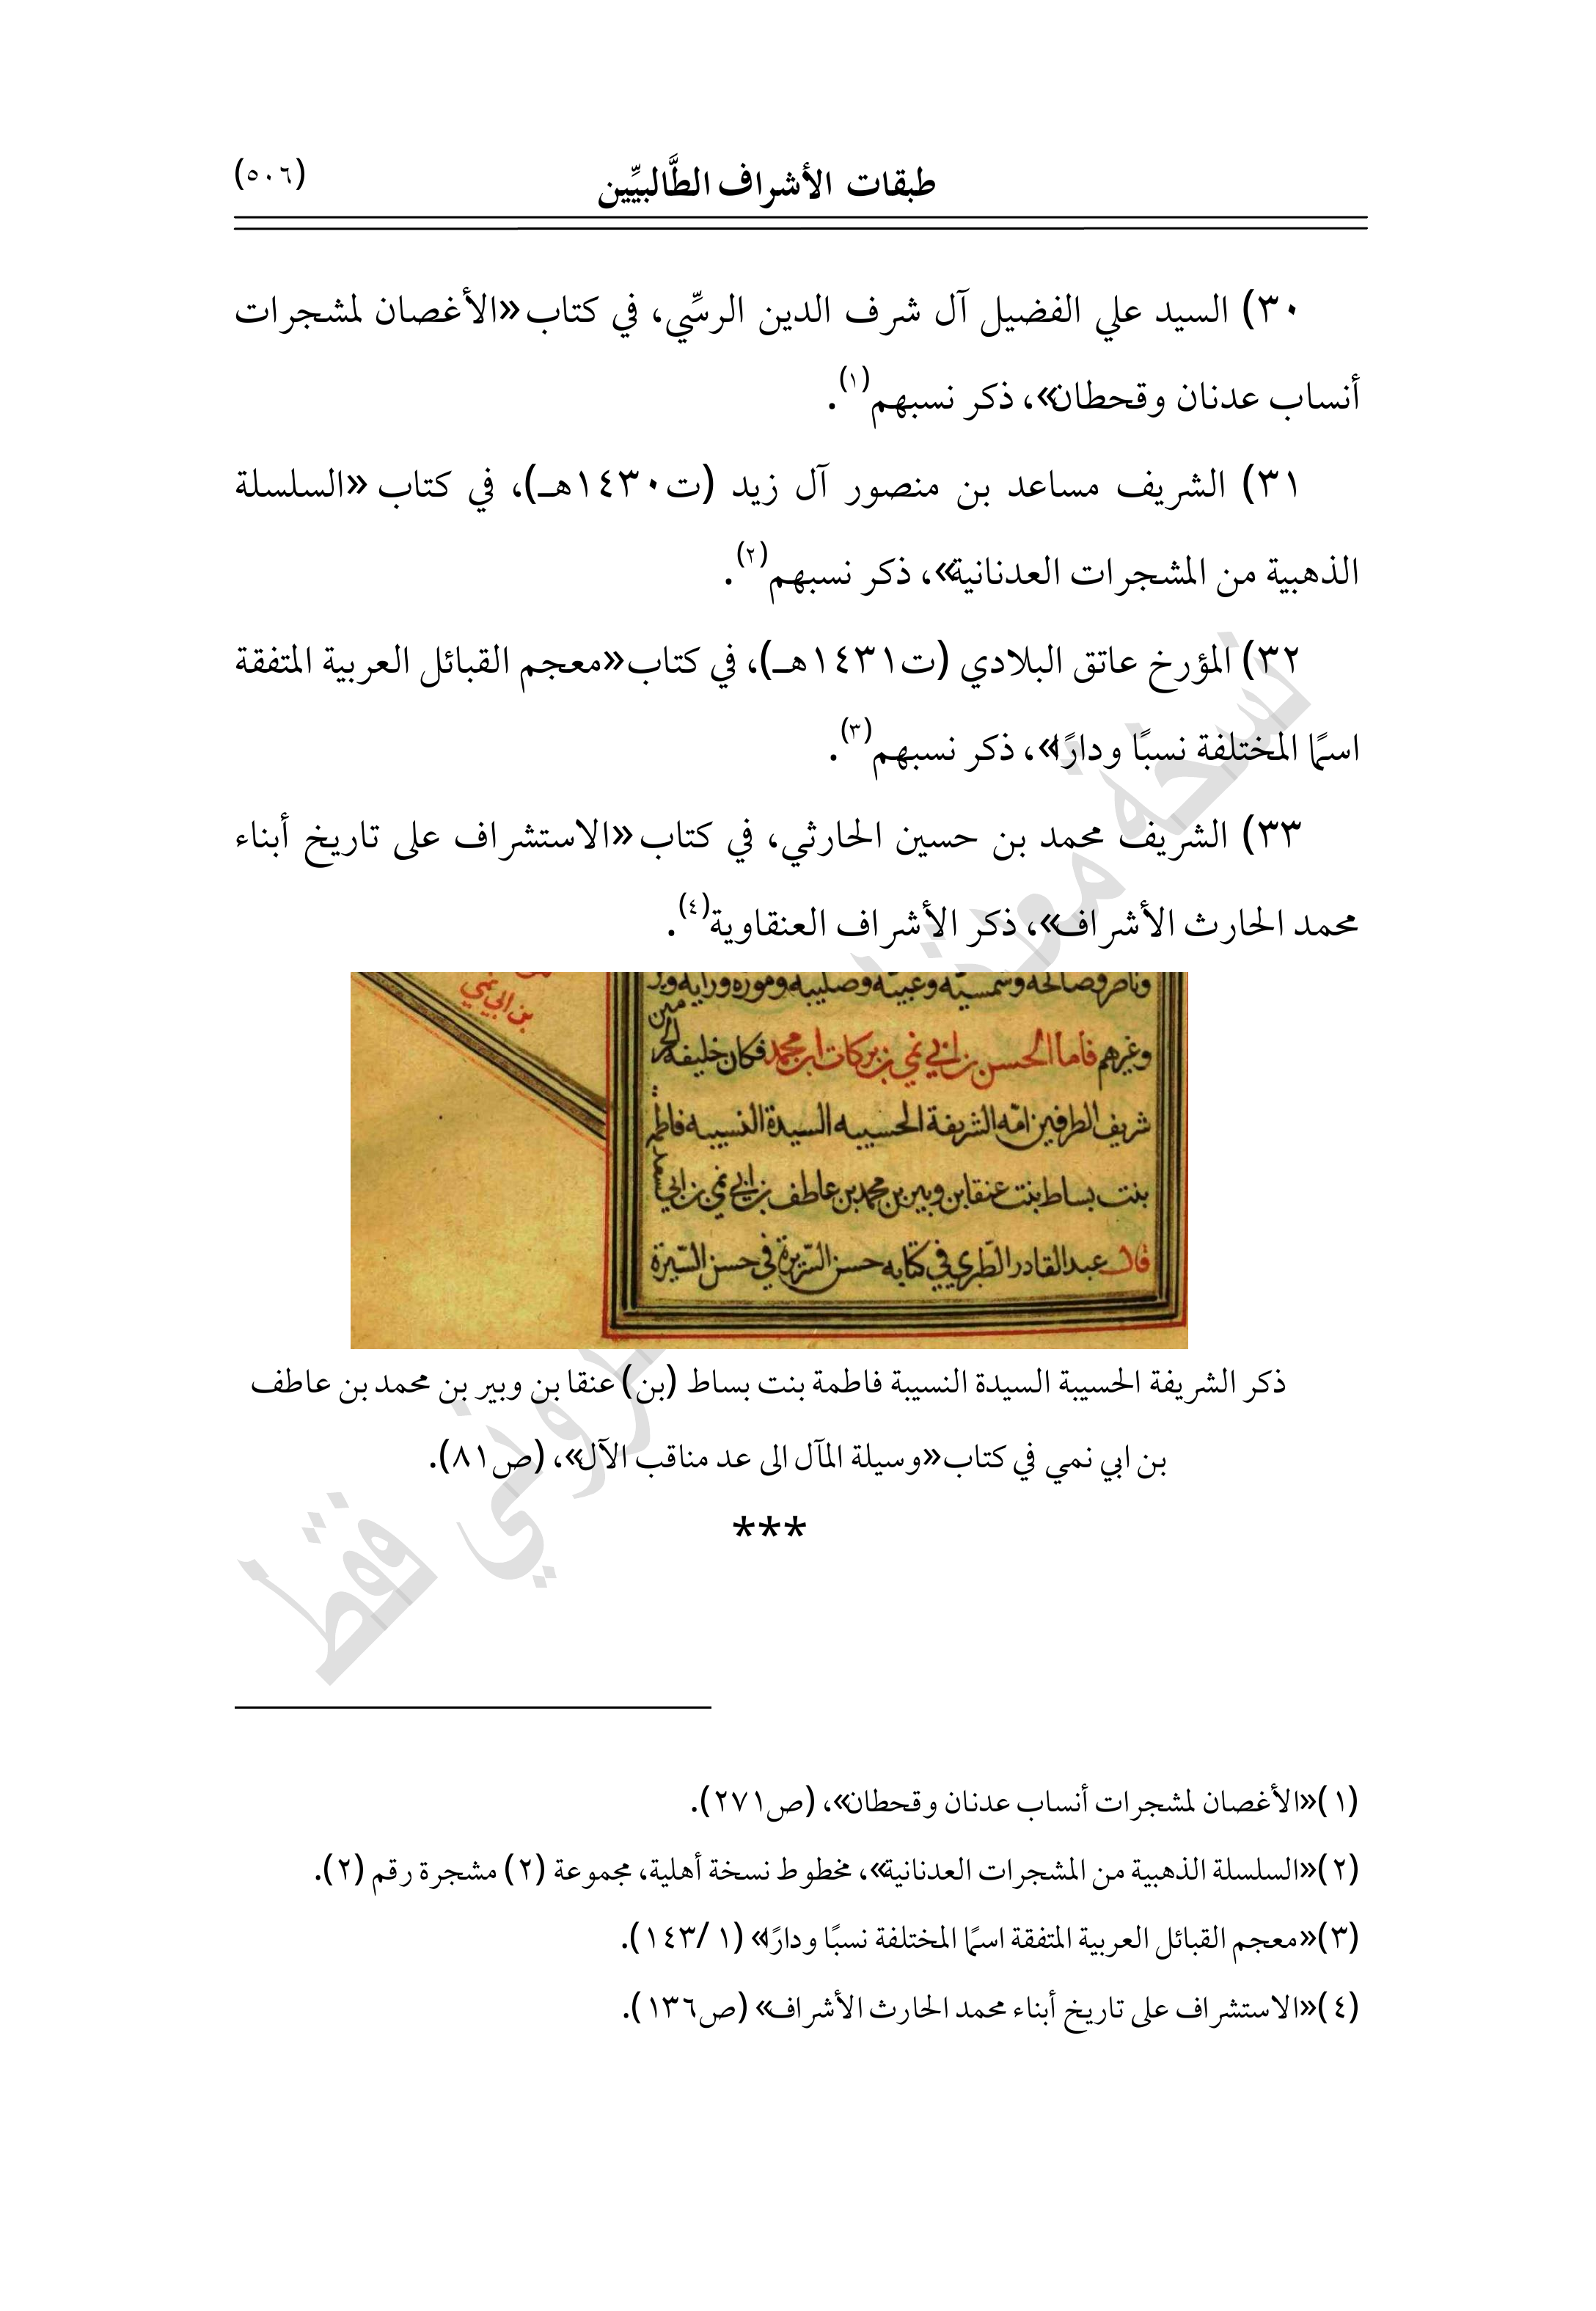 طبقات الأشراف الطَّالبيِّين
(٥٠٦)
٣٠) السيد علي الفضيل آل شرف الدين الرسِّي، في كتاب «الأغصان لمشجرات
أنساب عدنان وقحطان»، ذكر نسبهم(١).
٣١) الشريف مساعد بن منصور آل زيد (ت١٤٣٠هـ)، في كتاب «السلسلة
الذهبية من المشجرات العدنانية»، ذكر نسبهم(٢).
٣٢) المؤرخ عاتق البلادي (ت١٤٣١هـ)، في كتاب «معجم القبائل العربية المتفقة
اسمًا المختلفة نسبًا ودارًا»، ذكر نسبهم(٣).
٣٣) الشريف محمد بن حسين الحارثي، في كتاب «الاستشراف على تاريخ أبناء
محمد الحارث الأشراف»، ذكر الأشراف العنقاوية(٤).
بن ابي نمي
وغيرهم فاما الحسن بن ابي نمي بن بركات ابن محمد فكان خليفه
شريف الطرفين امّه الشريفة الحسيبه السيدة النسيبه فاطمه
بنت بساط بنت عنقا بن وبير بن محمد بن عاطف بن ابي نمي بن ابي
قال عبد القادر الطّبري في كتابه حسن السّريرة في حسن السّيرة
ذكر الشريفة الحسيبة السيدة النسيبة فاطمة بنت بساط (بن) عنقا بن وبير بن محمد بن عاطف
بن ابي نمي في كتاب «وسيلة المآل الى عد مناقب الآل»، (ص٨١).
***
(١) «الأغصان لمشجرات أنساب عدنان وقحطان»، (ص٢٧١).
(٢) «السلسلة الذهبية من المشجرات العدنانية»، مخطوط نسخة أهلية، مجموعة (٢) مشجرة رقم (٢).
(٣) «معجم القبائل العربية المتفقة اسمًا المختلفة نسبًا ودارًا» (١/ ١٤٣).
(٤) «الاستشراف على تاريخ أبناء محمد الحارث الأشراف» (ص١٣٦).